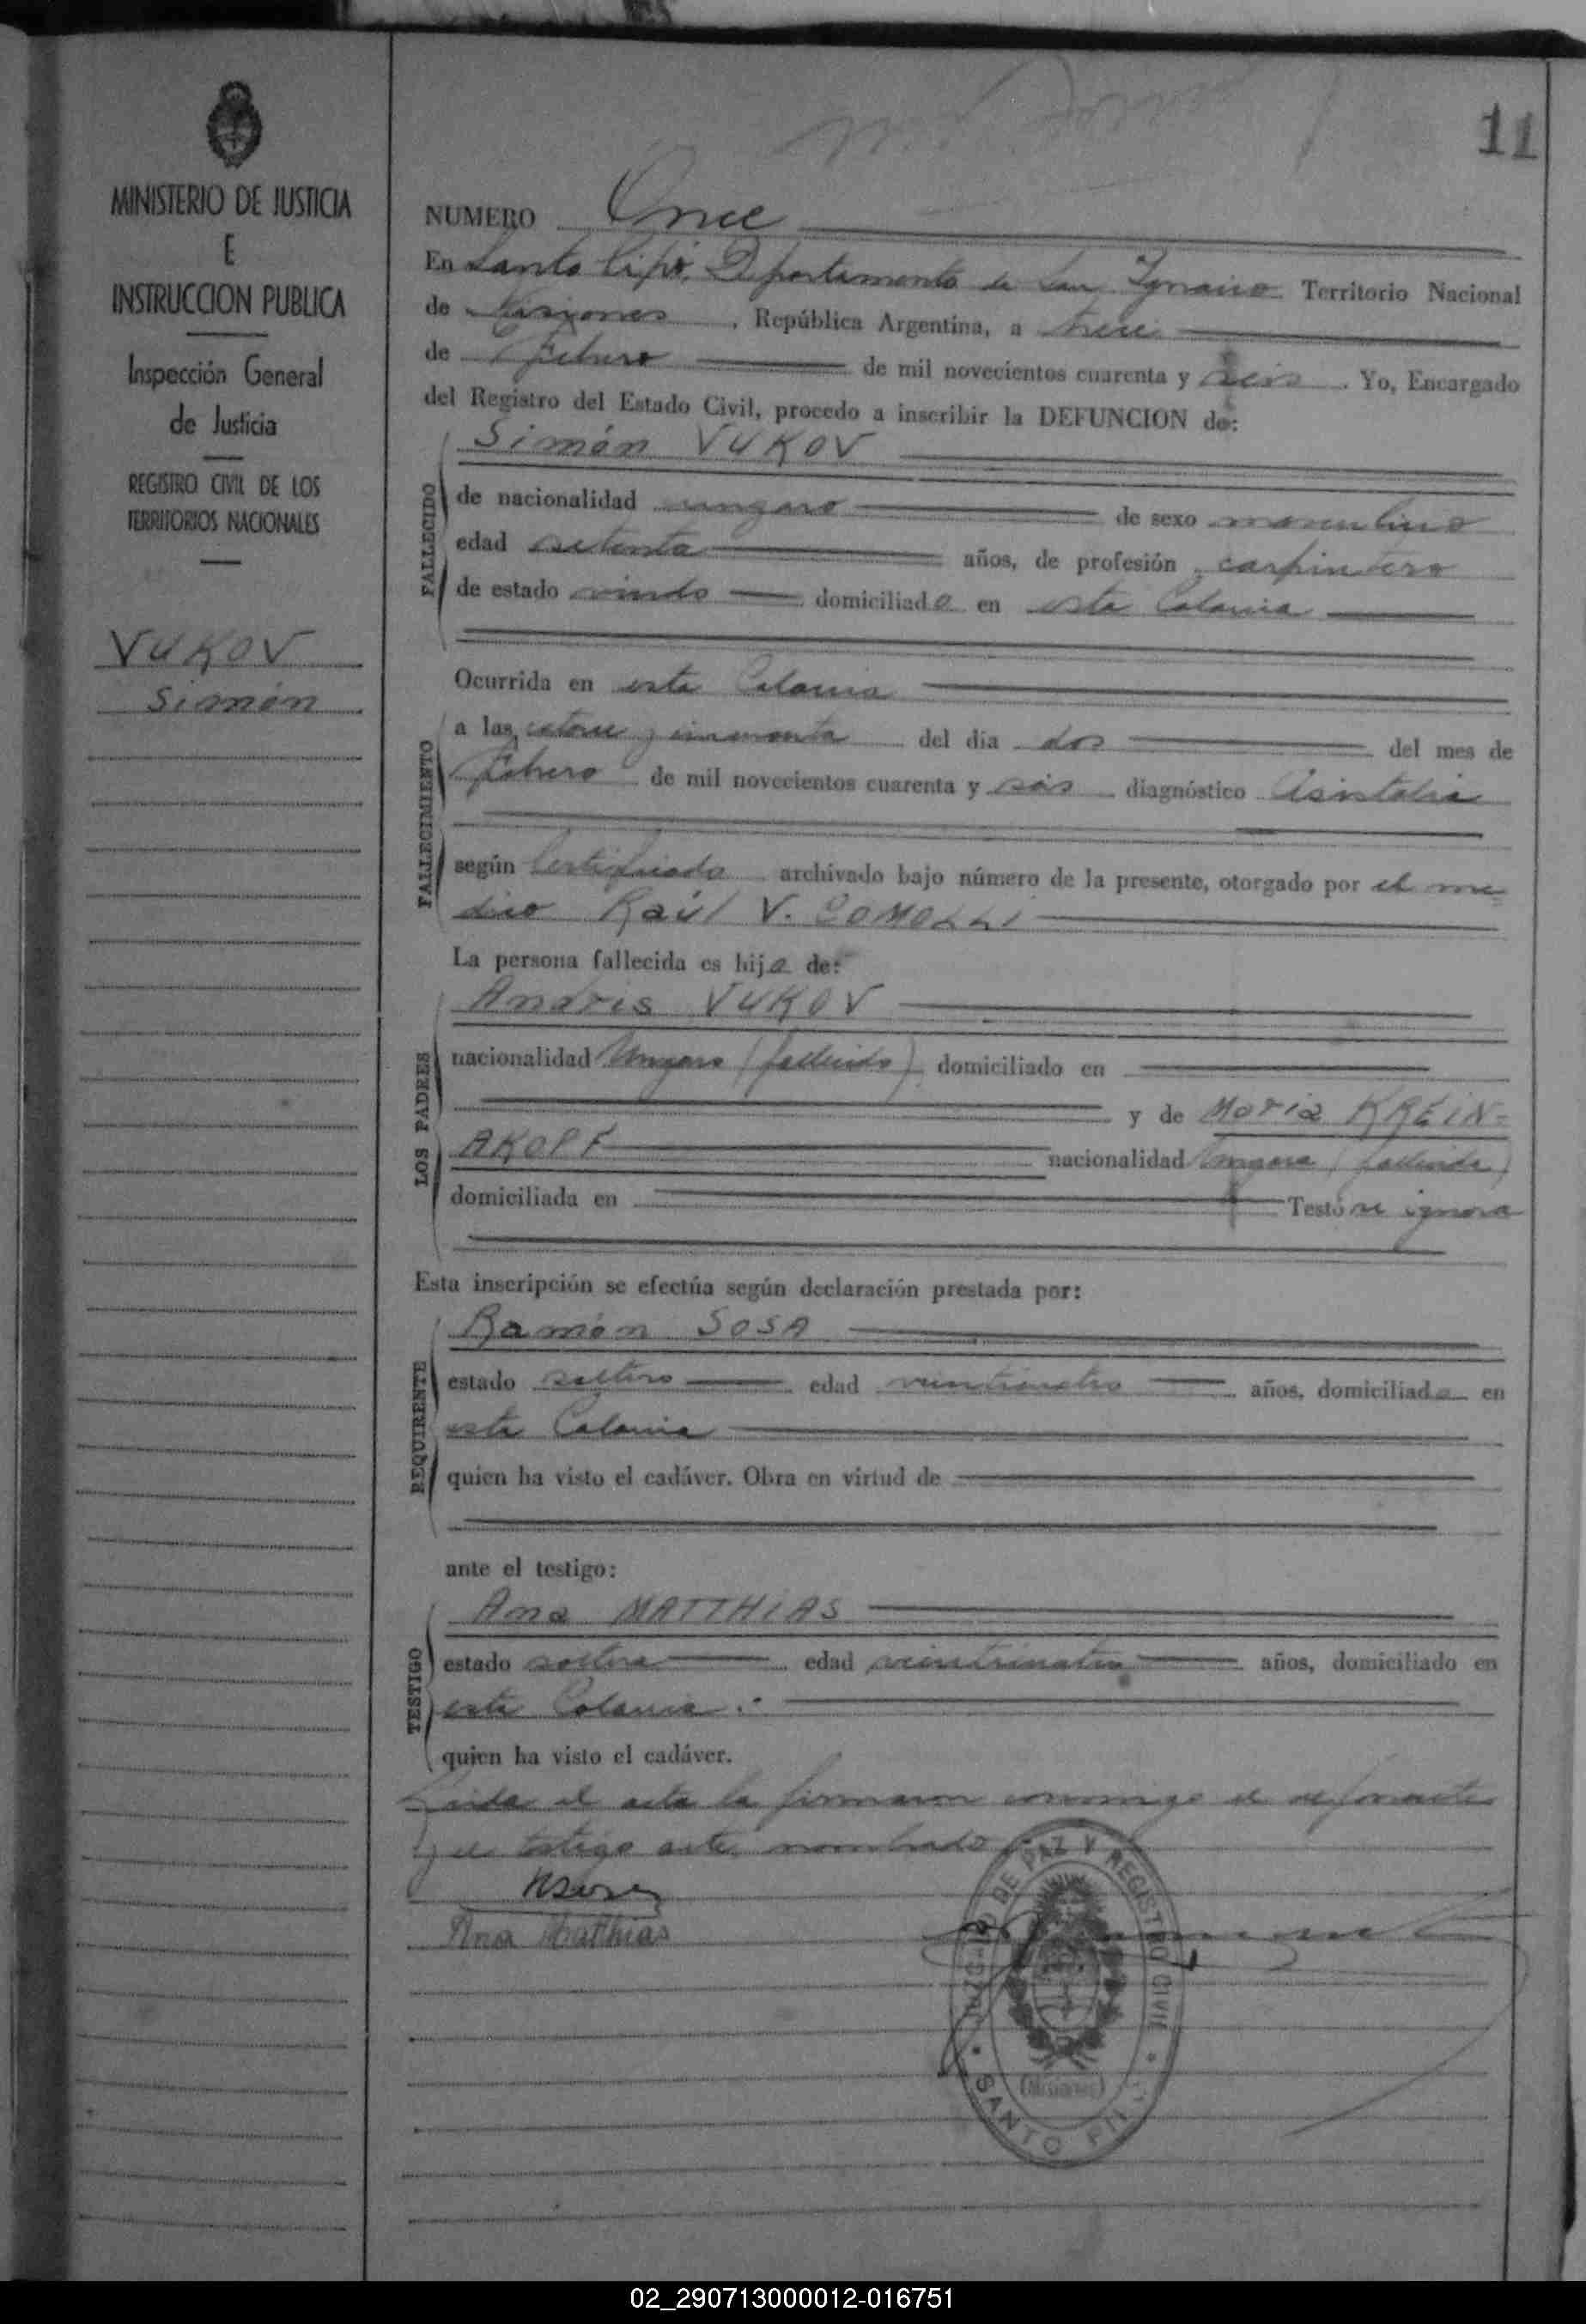 11
MINISTERIO DE JUSTICIA
E
INSTRUCCION PUBLICA
Inspección General
de Justicia
REGISTRO CIVIL DE LOS
TERRITORIOS NACIONALES
VUKOV
Simón
NUMERO Once
En Santo Pipó, Departamento de San Ygnacio Territorio Nacional
de Misiones, República Argentina, a trece
de Febrero de mil novecientos cuarenta y seis. Yo, Encargado
del Registro del Estado Civil, procedo a inscribir la DEFUNCION de:
Simón VUKOV
FALLECIDO
de nacionalidad ungaro de sexo masculino
edad setenta años, de profesión carpintero
de estado viudo domiciliado en esta Colonia
Ocurrida en esta Colonia
FALLECIMIENTO
a las catorce y cincuenta del día dos del mes de
Febrero de mil novecientos cuarenta y seis diagnóstico Asistolia
según Certificado archivado bajo número de la presente, otorgado por el me-
dico Raúl V. COMOLLI
La persona fallecida es hijo de:
LOS PADRES
Andrés VUKOV
nacionalidad Ungaro (fallecido) domiciliado en
y de Maria KREIN-
AKOPF nacionalidad Ungara (fallecida)
domiciliada en Testó se ignora
Esta inscripción se efectúa según declaración prestada por:
REQUIRENTE
Ramón SOSA
estado soltero edad veinticuatro años, domiciliado en
esta Colonia
quien ha visto el cadáver. Obra en virtud de
ante el testigo:
TESTIGO
Ana MATTHIAS
estado soltera edad veinticuatro años, domiciliado en
esta Colonia.
quien ha visto el cadáver.
Leida el acta la firmaron conmigo el
y el testigo ante nombrado
Ana Matthias
JUZGADO DE PAZ Y REGISTRO CIVIL
SANTO PIPÓ
(Misiones)
02_290713000012-016751